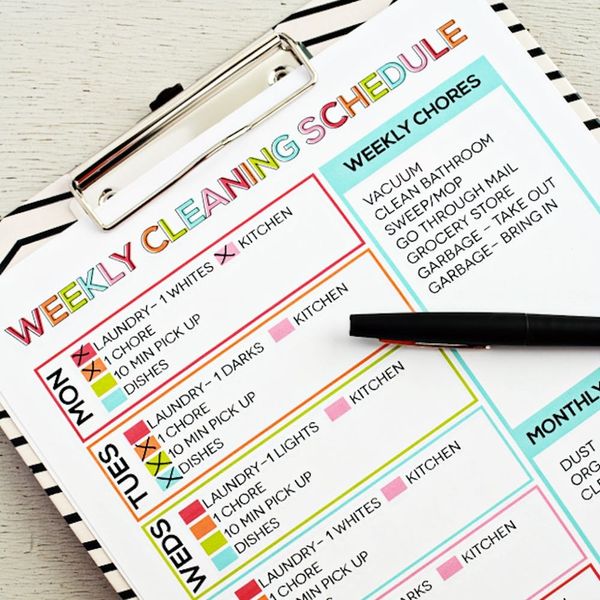 WEEKLY CLEANING SCHEDULE
MON
LAUNDRY- 1 WHITES
KITCHEN
1 CHORE
10 MIN PICK UP
DISHES
TUES
LAUNDRY- 1 DARKS
KITCHEN
1 CHORE
10 MIN PICK UP
DISHES
WEDS
LAUNDRY-1 LIGHTS
KITCHEN
1 CHORE
10 MIN PICK UP
DISHES
LAUNDRY- 1 WHITES
KITCHEN
1 CHORE
10 MIN PICK UP
DISHES
LAUNDRY- 1
KITCHEN
WEEKLY CHORES
VACUUM
CLEAN BATHROOM
SWEEP/MOP
GO THROUGH MAIL
GROCERY STORE
GARBAGE - TAKE OUT
GARBAGE- BRING IN
MONTHLY
DUST